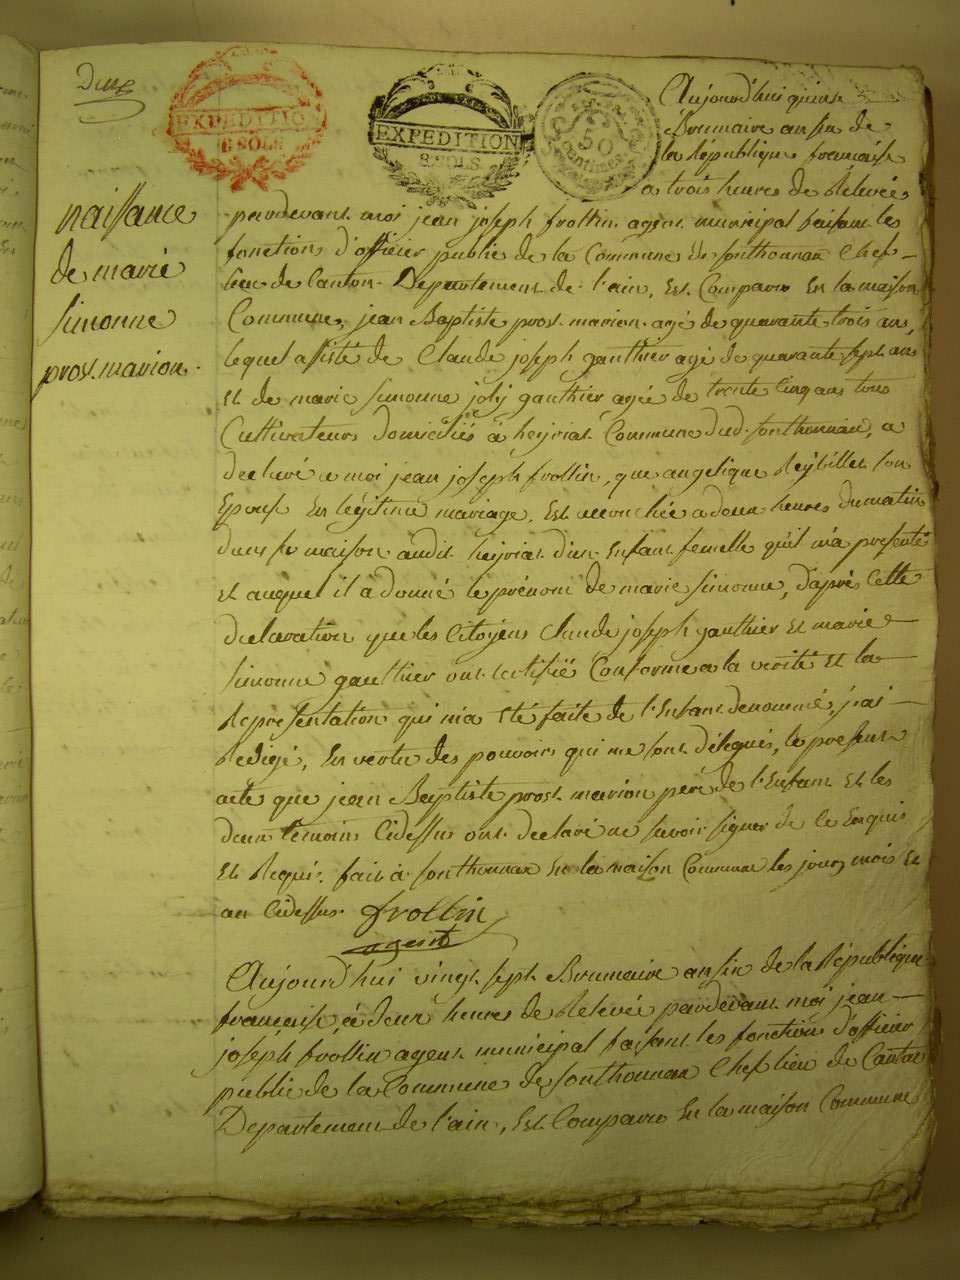 Deux
EXPEDITION
8 SOLS
EXPEDITION
8 SOLS
50
Centimes
Aujourd'hui quinze
Brumaire an six de
la République francaise
a trois heures de Relevée
naissance
de marie
simonne
prost marion.
pardevant moi jean joseph frollin agent municipal faisant les
fonctions d'officier public de la Commune de sonthonnax Chef
lieu de Canton Departement de l'ain, Est Comparu En la maison
Commune, jean Baptiste prost marion agé de quarante trois ans,
lequel assisté de Claude joseph gauthier agé de quarante sept ans
Et de marie simonne joly gauthier agée de trente Cinq ans tous
Cultivateurs domiciliés à heyriat Commune dud. sonthonnax, a
declaré a moi jean joseph frollin, que angelique Reybillet son
Epouse En légitime mariage, Est accouchée a deux heures du matin
dans sa maison audit heyriat d'un Enfant femelle qu'il m'a présenté
Et auquel il a donné le prénom de marie simonne, d'après Cette
declaration que les Citoyens claude joseph gauthier Et marie
simonne gauthier ont certifié Conforme a la verité Et la
Représentation qui m'a été faite de l'Enfant denommé, j'ai
Redigé, En vertu des pouvoirs qui me sont délegués, le present
acte que jean Baptiste prost marion père de l'Enfant Et les
deux temoins Cidessus ont declaré ne savoir signer de ce Enquis
Et Requis. fait à sonthonnax En la maison Commune les jour, mois Et
an Cidessus. frollin
agent
Aujourd'hui vingt sept Brumaire an six de la République
francaise, à deux heures de Relevée pardevant moi jean
joseph frollin agent municipal faisant les fonctions d'officier
public de la Commune de sonthonnax Chef lieu de Canton
Departement de l'ain, Est Comparu En la maison Commune